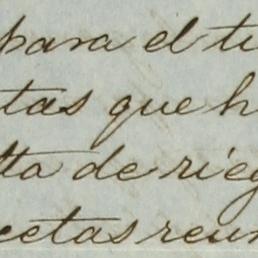 para el ti
tas que h
tta de rieg
cetas reun